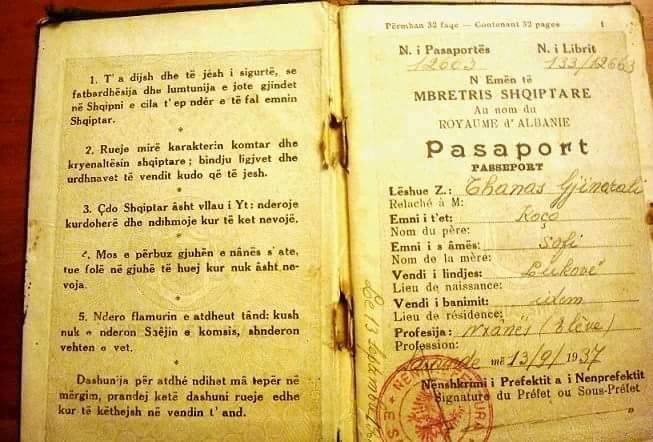 1. T'a dijsh dhe të jèsh i sigurtë, se
fatbardhësija dhe lumtunija e jote gjindet
në Shqipni e cila t'ep ndér e të fal emnin
Shqiptar.
*
2. Rueje mirë karakterin komtar dhe
kryenaltësin shqiptare; bindju ligjvet dhe
urdhnavet të vendit kudo që të jesh.
*
3. Çdo Shqiptar âsht vllau i Yt: nderoje
kurdoherë dhe ndihmoje kur të ket nevojë.
*
4. Mos e përbuz gjuhën e nânës s'ate,
tue folë në gjuhë të huej kur nuk âsht ne-
voja.
*
5. Ndero flamurin e atdheut tând: kush
nuk e nderon Shêjin e komsis, shnderon
vehten e vet.
Dashunija për atdhé ndihet mâ tepër në
mërgim, prandej ketë dashuni rueje edhe
kur të këthejsh në vendin t'and.
Përmban 32 faqe — Contenant 32 pages 1
N. i Pasaportës N. i Librit
12663 133/12663
N' Emën të
MBRETRIS SHQIPTARE
Au nom du
ROYAUME d'ALBANIE
Pasaport
PASSEPORT
Lëshue Z.: Thanas Gjinarali
Relaché à M:
Emni i t'et: Koço
Nom du père:
Emni i s âmës: Sofi
Nom de la mère:
Vendi i lindjes: Lukovë
Lieu de naissance:
Vendi i banimit: idem
Lieu de résidence:
Profesija: Nxanës (Elève)
Profession:
Sarandë më 13/9/1937
Nënshkrimi i Prefektit a i Nenprefektit
Signature du Préfet ou Sous-Préfet